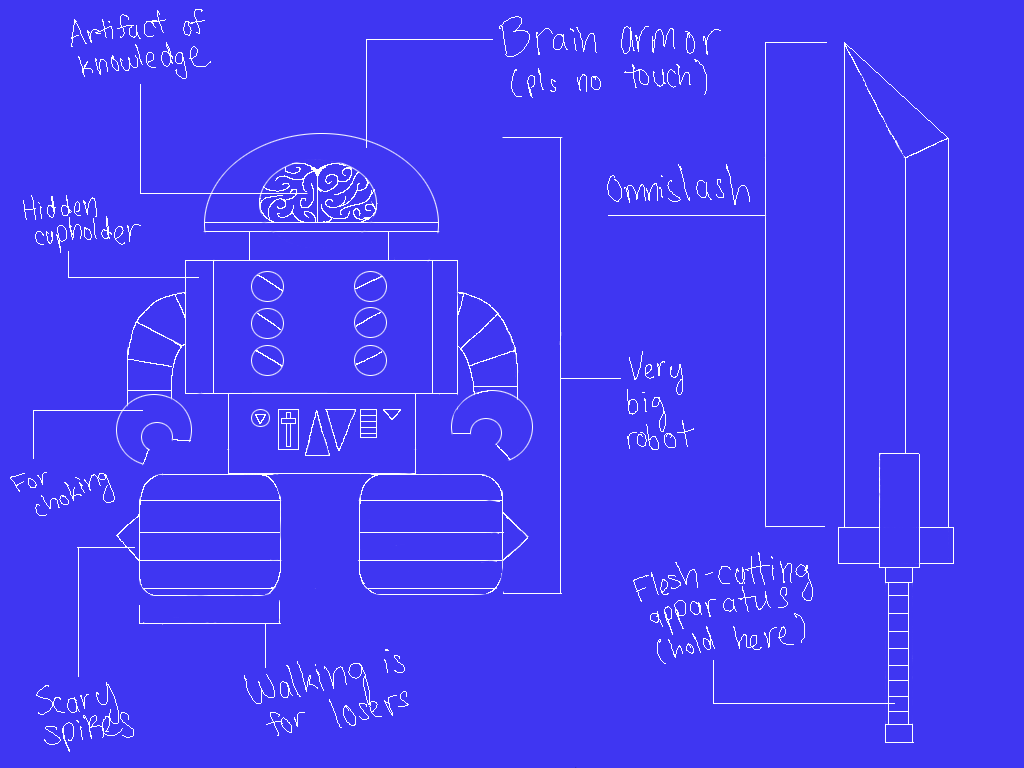 Artifact of
knowledge
Brain armor
(pls no touch)
Hidden
cupholder
Omnislash
Very
big
robot
For
choking
Flesh-cutting
apparatus
(hold here)
Scary
spikes
Walking is
for losers